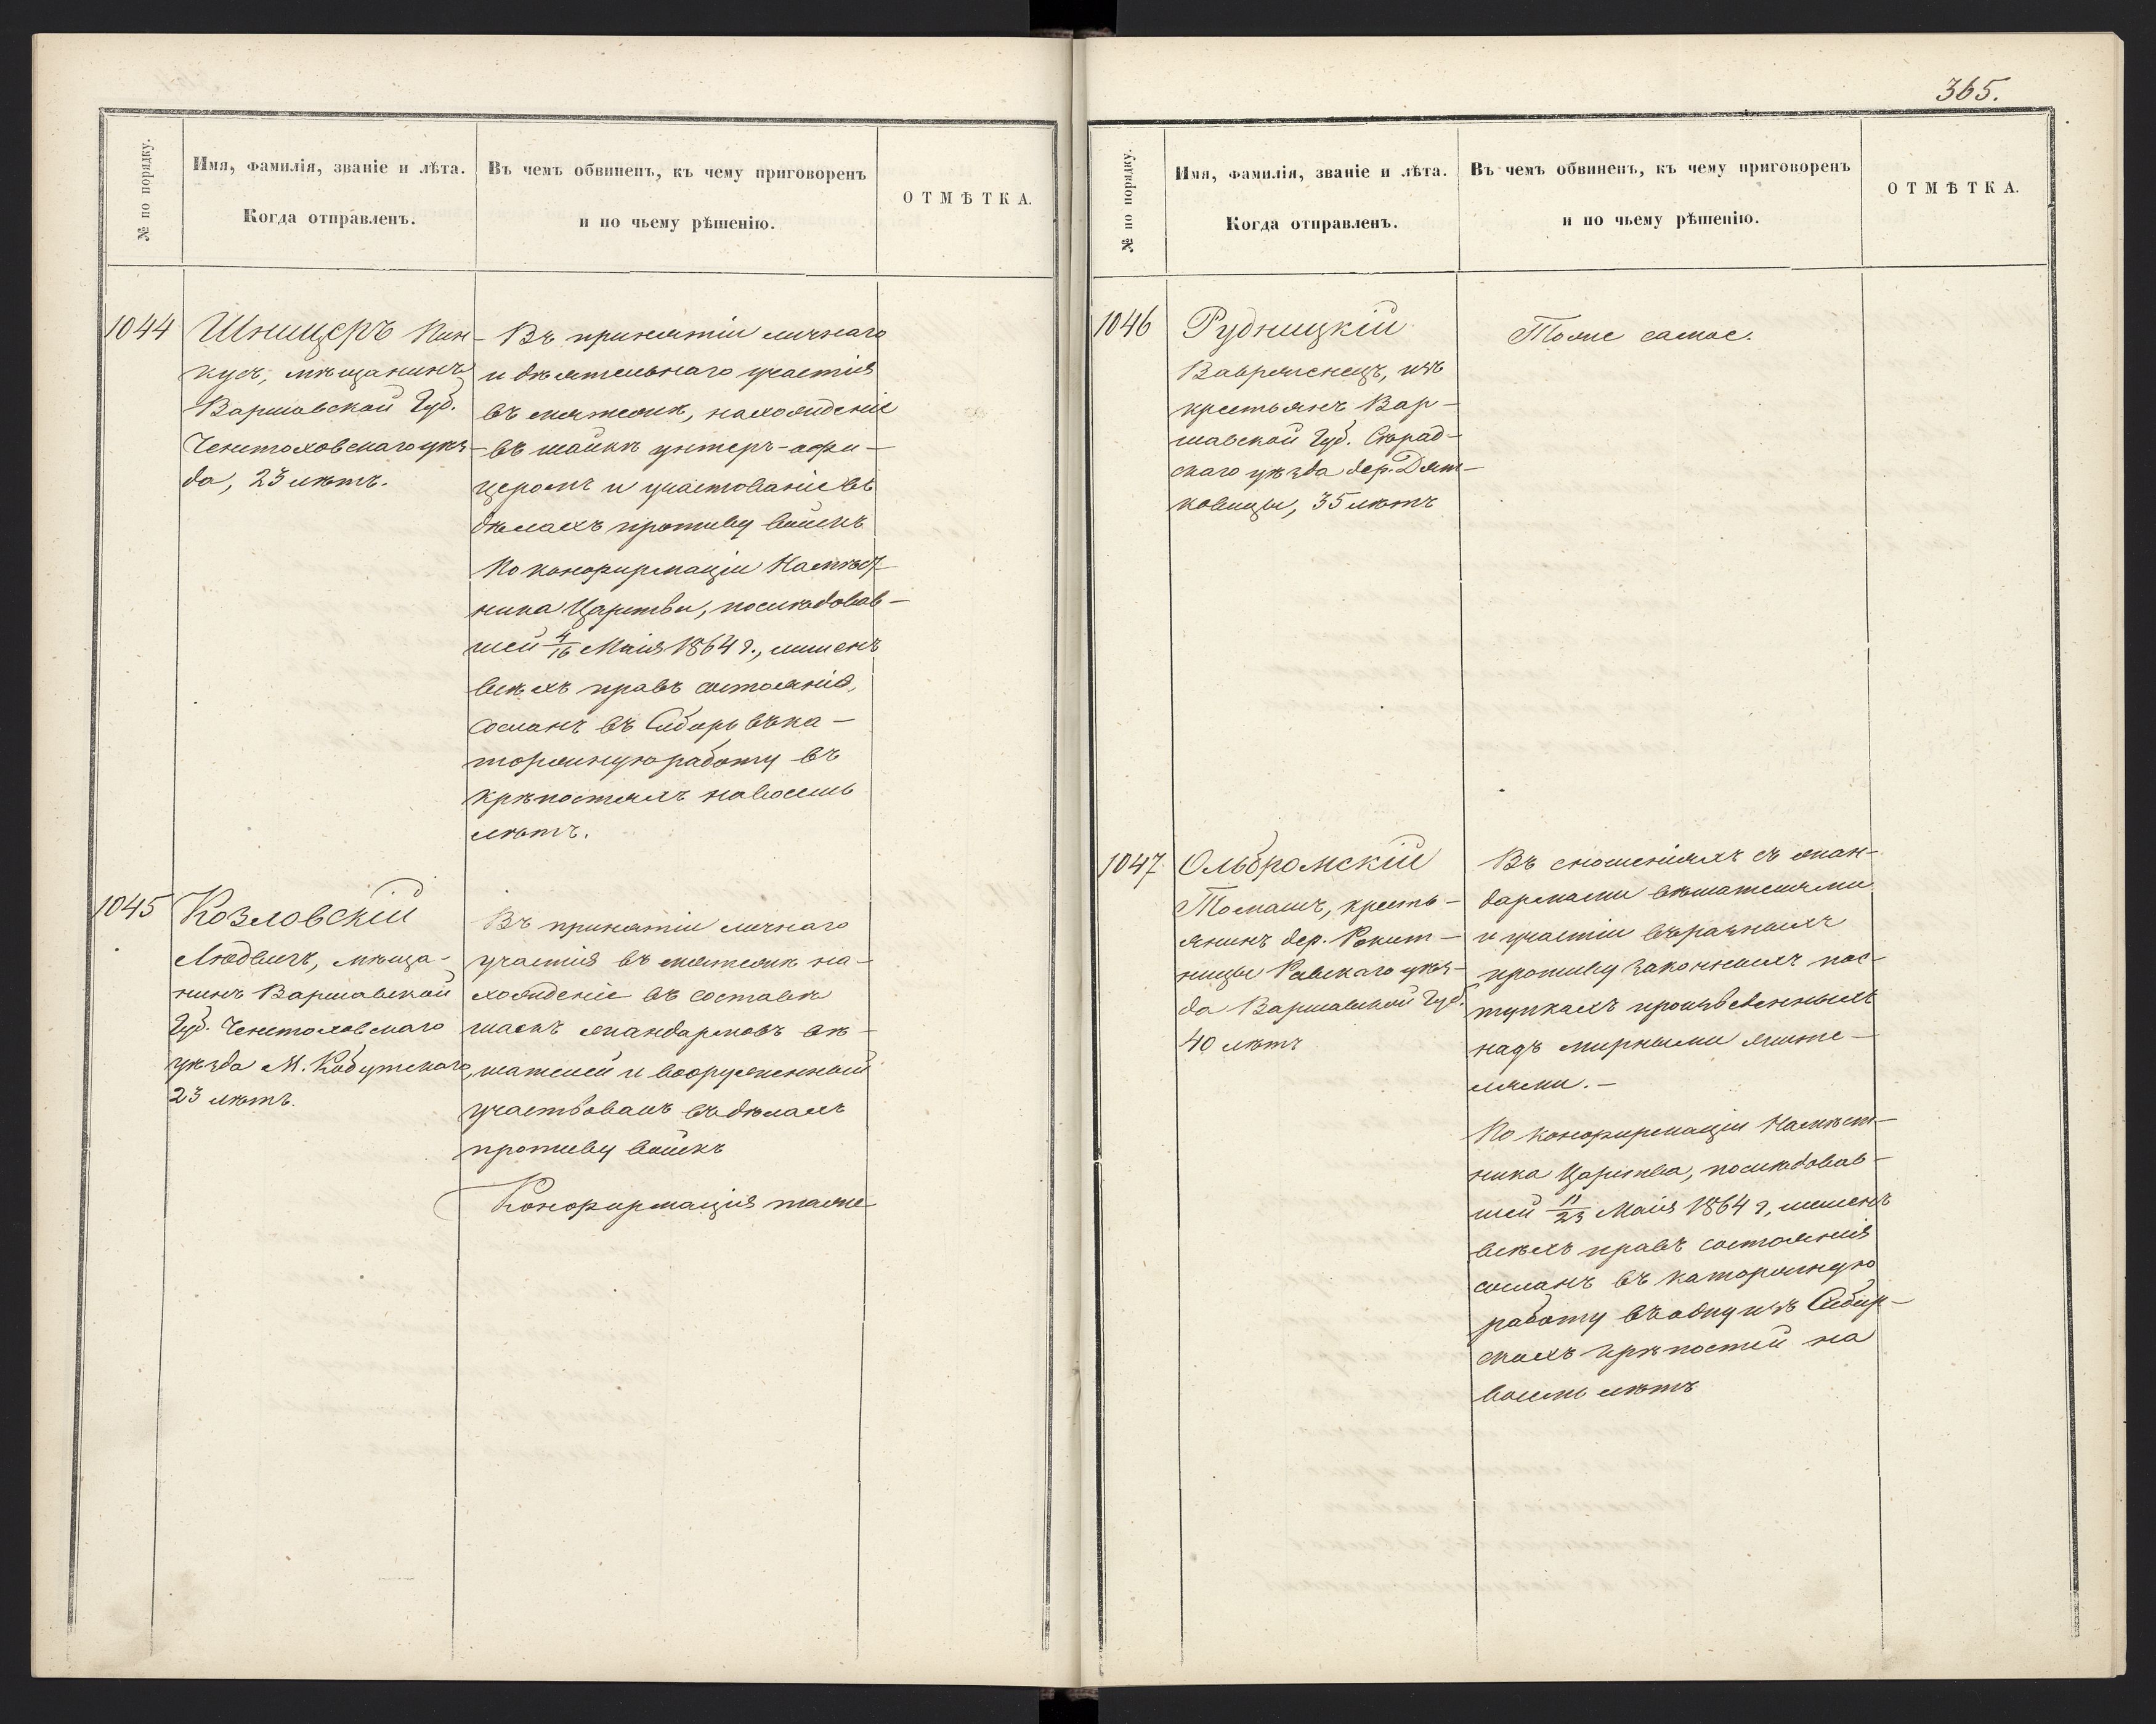 № по порядку.
Имя, фамилія, званіе и лѣта.
Когда отправленъ.
Въ чемъ обвиненъ, къ чему приговоренъ
и по чьему рѣшенію.
ОТМѢТКА.
1044
Шницеръ Пин-
кусъ, мѣщанинъ
Варшавской Губ.
Ченстоховскаго уѣз-
да, 23 лѣтъ.
Въ принятіи личнаго
и дѣятельнаго участія
въ мятежѣ, нахожденіе
въ шайкѣ унтеръ-офи-
церомъ и участованіе въ
дѣлахъ противу войскъ
По конфирмаціи Намѣст-
ника Царства, послѣдовав-
шей 4/16 Маія 1864 г., лишенъ
всѣхъ правъ состоянія,
сосланъ въ Сибирь въ ка-
торжную работу въ
крѣпостяхъ на восемь
лѣтъ.
1045
Козловскій
Людвигъ, мѣща-
нинъ Варшавской
Губ. Ченстоховскаго
уѣзда М.
23 лѣтъ.
Въ принятіи личнаго
участія въ мятежѣ на-
хожденіе въ составѣ
шаекъ жандармовъ вѣ-
шателей и вооруженный
участвовалъ въ дѣлахъ
противу войскъ
Конфирмація таже
365.
№ по порядку.
Имя, фамилія, званіе и лѣта.
Когда отправленъ.
Въ чемъ обвиненъ, къ чему приговоренъ
и по чьему рѣшенію.
ОТМѢТКА.
1046
Рудницкій
Вавржинецъ, изъ
крестьянъ Вар-
шавской Губ. Сѣрад-
скаго уѣзда дер. Дят-
ковицы, 35 лѣтъ
Тоже самое.
1047
Ольбромскій
Томашъ, кресть-
янинъ дер. Рокит-
ницы Равскаго уѣз-
да Варшавской Губ.
40 лѣтъ
Въ сношеніяхъ съ жан-
дармами вѣшателями
и участіи въ разныхъ
противу законныхъ пос-
тупкахъ произведенныхъ
надъ мирными жите-
лями.-
По конфирмаціи Намѣст-
ника Царства, послѣдовав-
шей 11/23 Маія 1864 г, лишенъ
всѣхъ правъ состоянія
сосланъ въ каторжную
работу въ одну изъ Сибир-
скихъ крѣпостей на
восемь лѣтъ